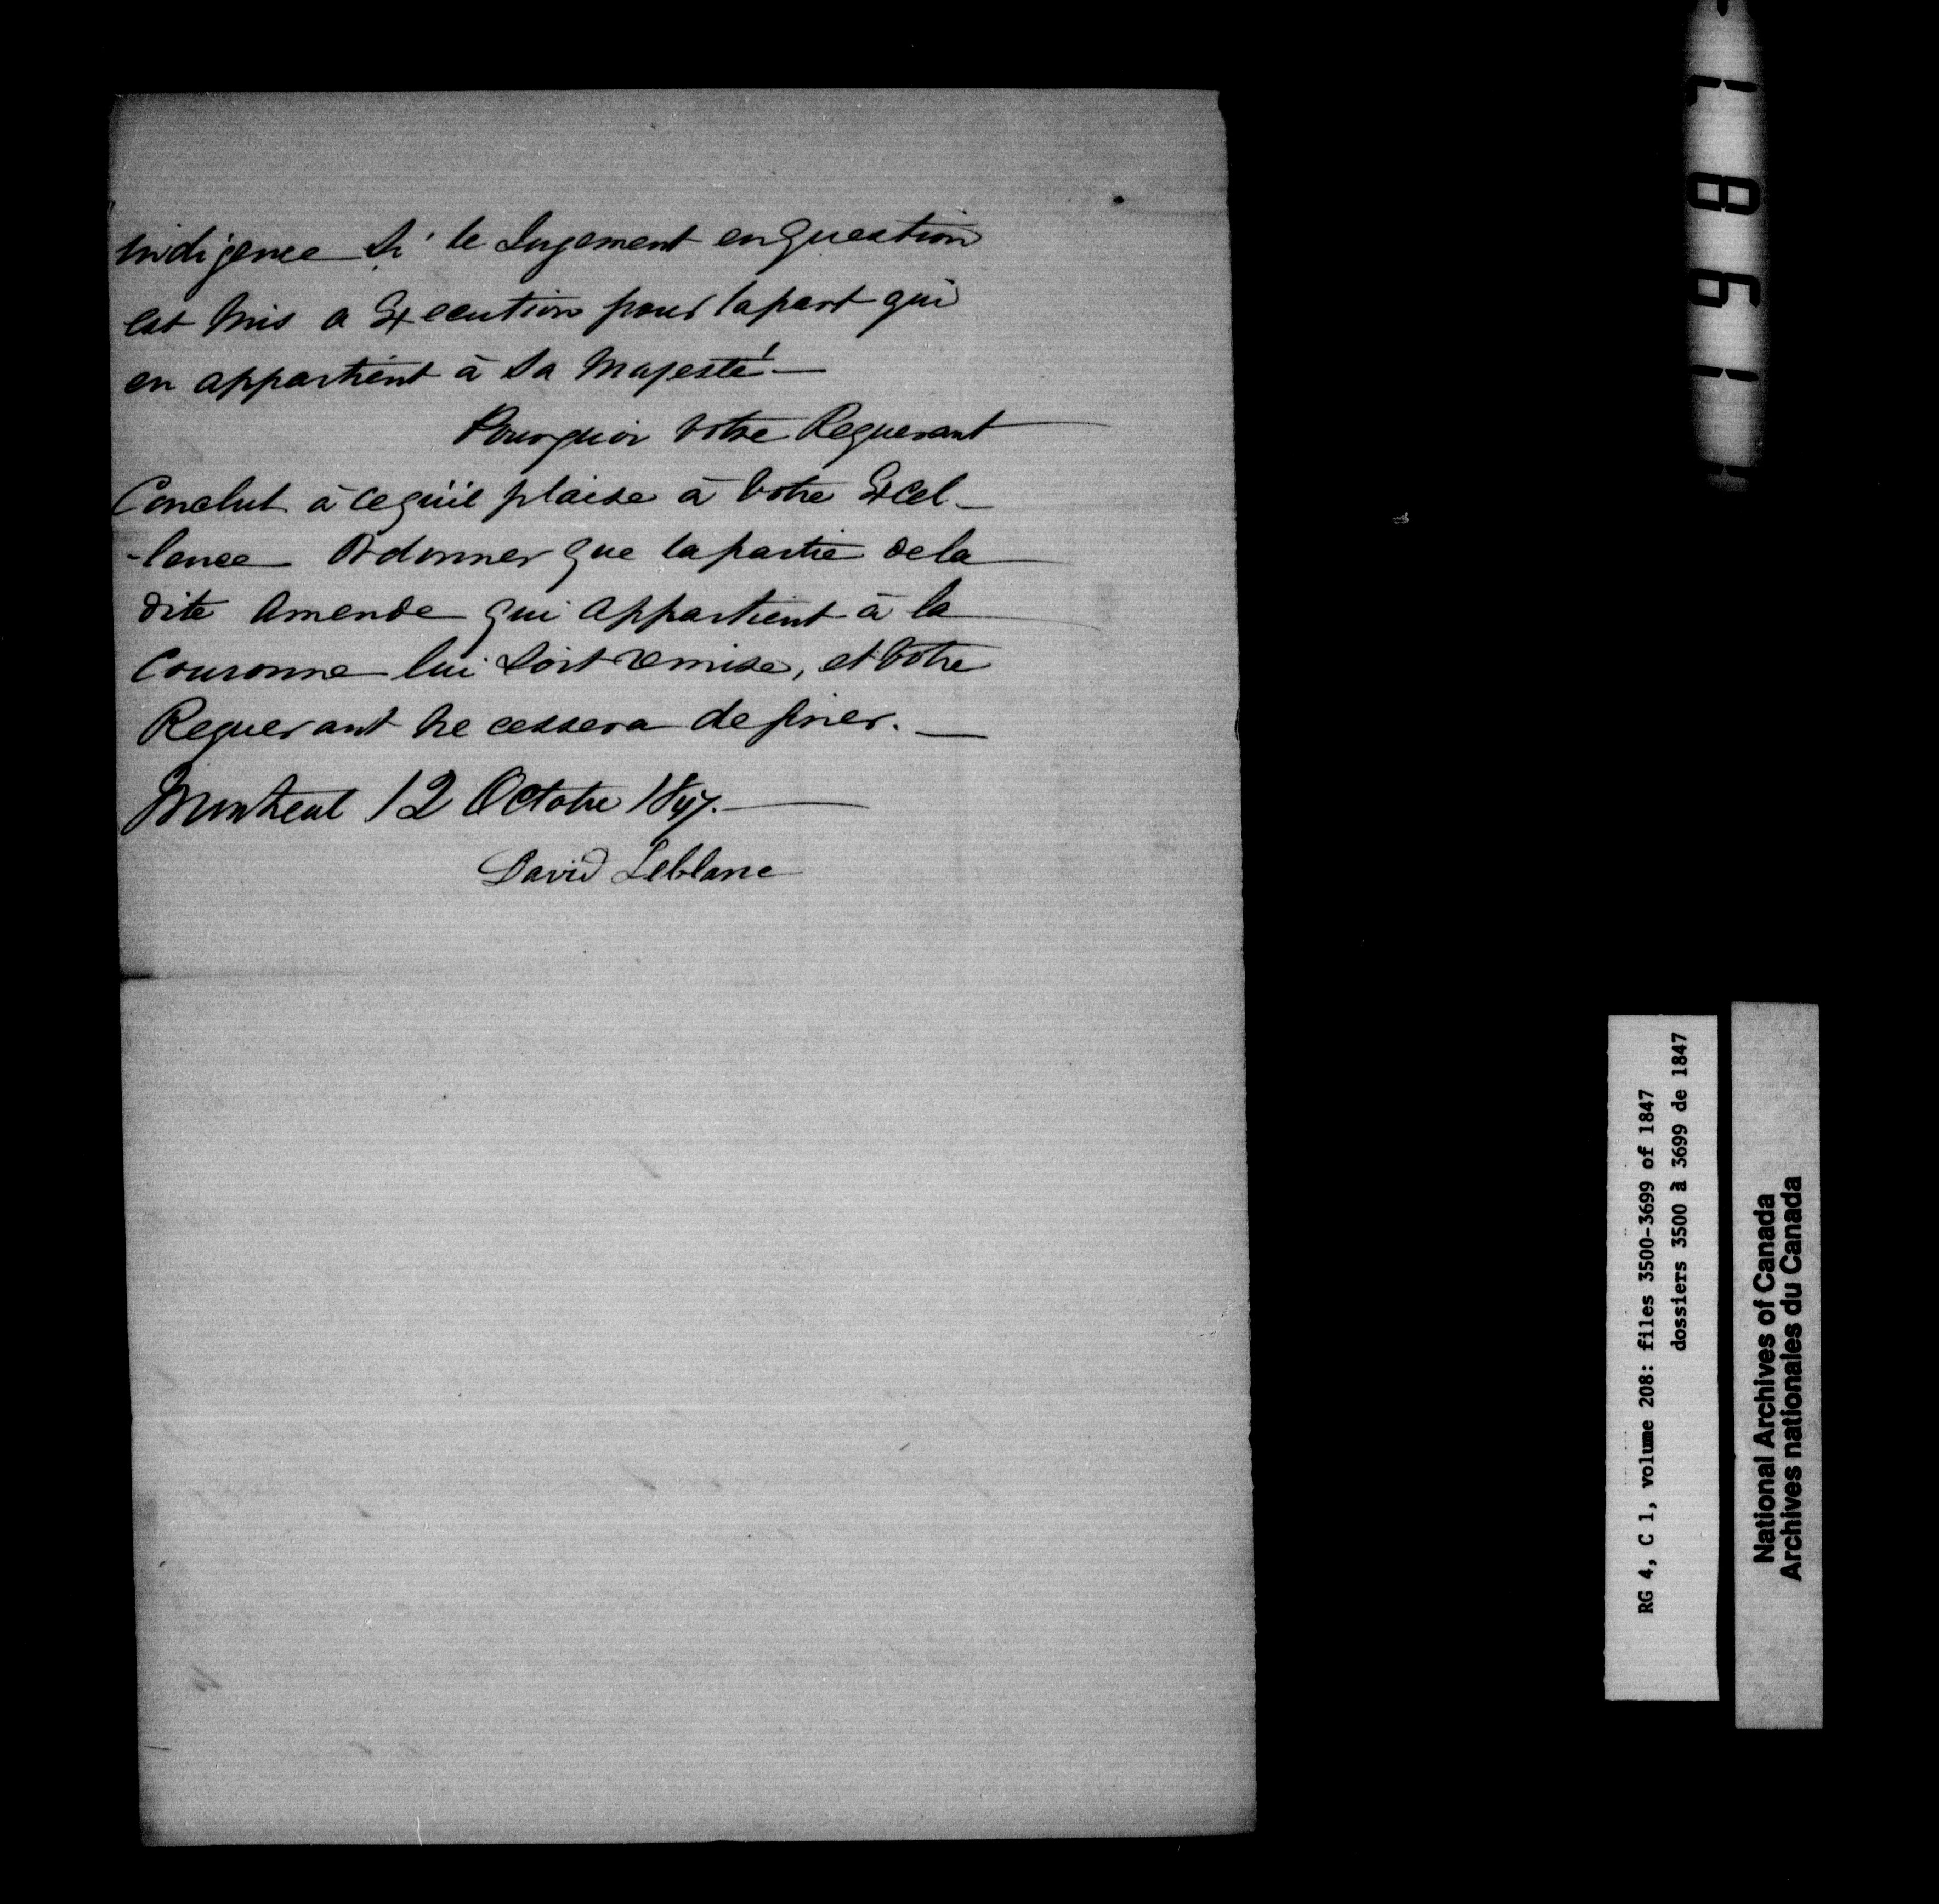 indigence si le Jugement en question
est mis a Execution pour la part qui
en appartient à Sa Majesté —
Pourquoi votre Requerant
Conclut à ce qu'il plaise à votre Excel-
-lence Ordonner que la partie de la
dite Amende qui appartient à la
Couronne lui soit remise, et votre
Requerant ne cessera de prier. —
Montreal 12 Octobre 1847. —
David Leblanc
RG 4, C 1, volume 208: files 3500-3699 of 1847
dossiers 3500 à 3699 de 1847
National Archives of Canada
Archives nationales du Canada